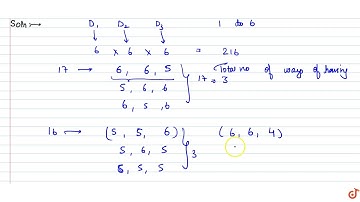 Soln :→ D₁ D₂ D₃ 1 to 6
↓ ↓ ↓
6 × 6 × 6 = 216
17 → 6, 6, 5 } Total no of ways of having
5, 6, 6 17 = 3
6, 5, 6
16 → (5, 5, 6) } (6, 6, 4)
5, 6, 5 3
6, 5, 5